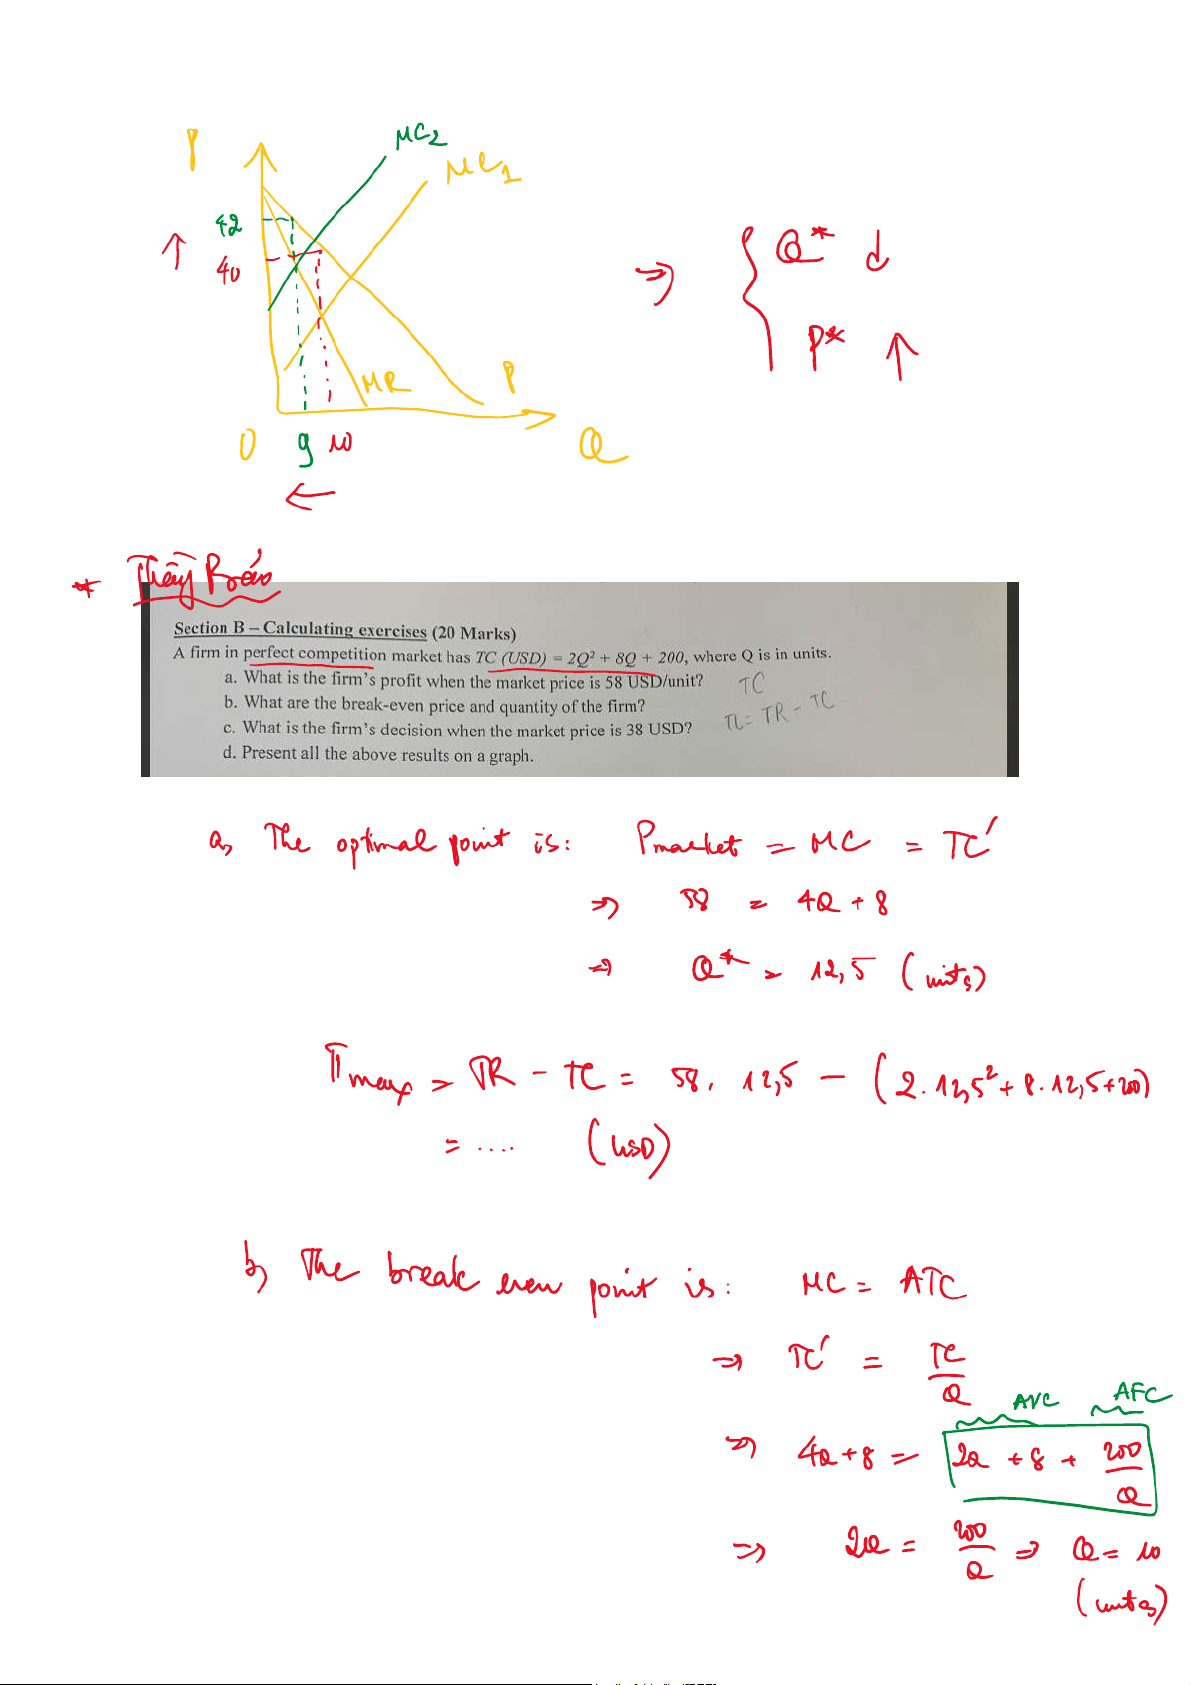 P
MC2
MC1
42
↑ 40
⇒ { Q* ↓
P* ↑
MR
P
0 9 10 Q
←
* Thầy Bảo
Section B – Calculating exercises (20 Marks)
A firm in perfect competition market has TC (USD) = 2Q² + 8Q + 200, where Q is in units.
a. What is the firm's profit when the market price is 58 USD/unit?
TC
b. What are the break-even price and quantity of the firm?
π = TR - TC
c. What is the firm's decision when the market price is 38 USD?
d. Present all the above results on a graph.
a, The optimal point is: Pmarket = MC = TC'
⇒ 58 = 4Q + 8
⇒ Q* = 12,5 (units)
πmax = TR - TC = 58. 12,5 - (2. 12,5² + 8. 12,5 + 200)
= .... (USD)
b, The break even point is: MC = ATC
⇒ TC' = TC/Q
AVC AFC
⇒ 4Q + 8 = 2Q + 8 + 200/Q
⇒ 2Q = 200/Q ⇒ Q = 10
(units)